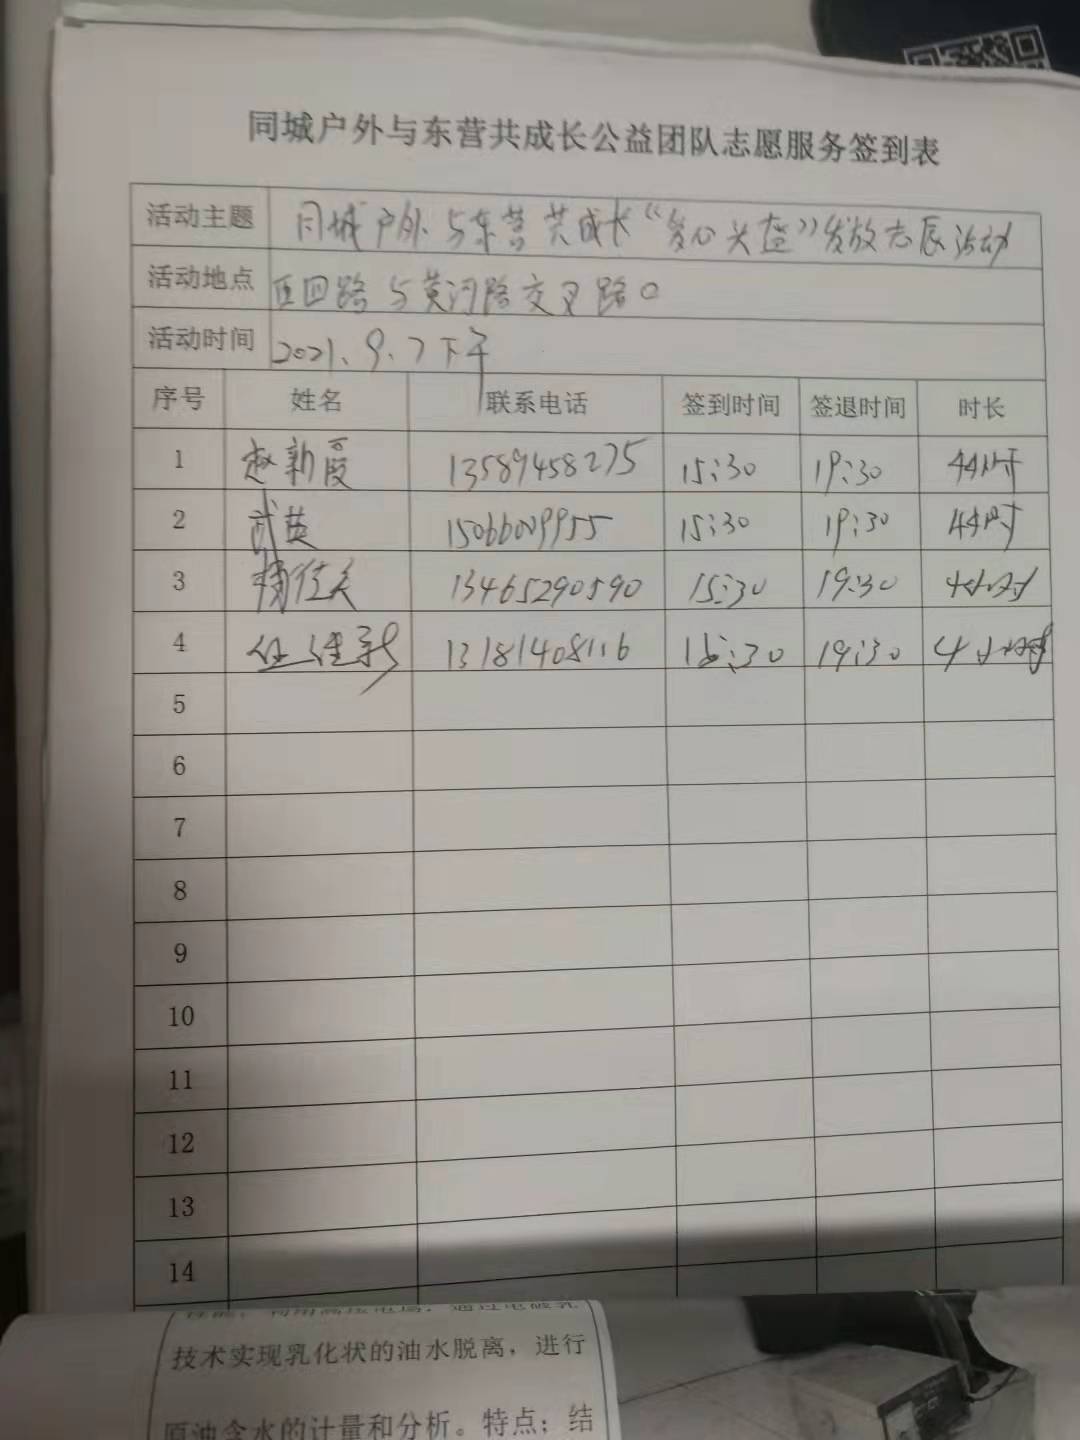 同城户外与东营共成长公益团队志愿服务签到表
活动主题 同城户外与东营共成长“爱心头盔”发放志愿活动
活动地点 西四路与黄河路交叉路口
活动时间 2021.9.7下午
序号 姓名 联系电话 签到时间 签退时间 时长
1 赵新霞 13589458275 15:30 19:30 4小时
2 武英 15066009955 15:30 19:30 4小时
3 13465290590 15:30 19:30 4小时
4 任佳新 13181408116 15:30 19:30 4小时
5
6
7
8
9
10
11
12
13
14
技术实现乳化状的油水脱离，进行
原油含水的计量和分析。特点：结